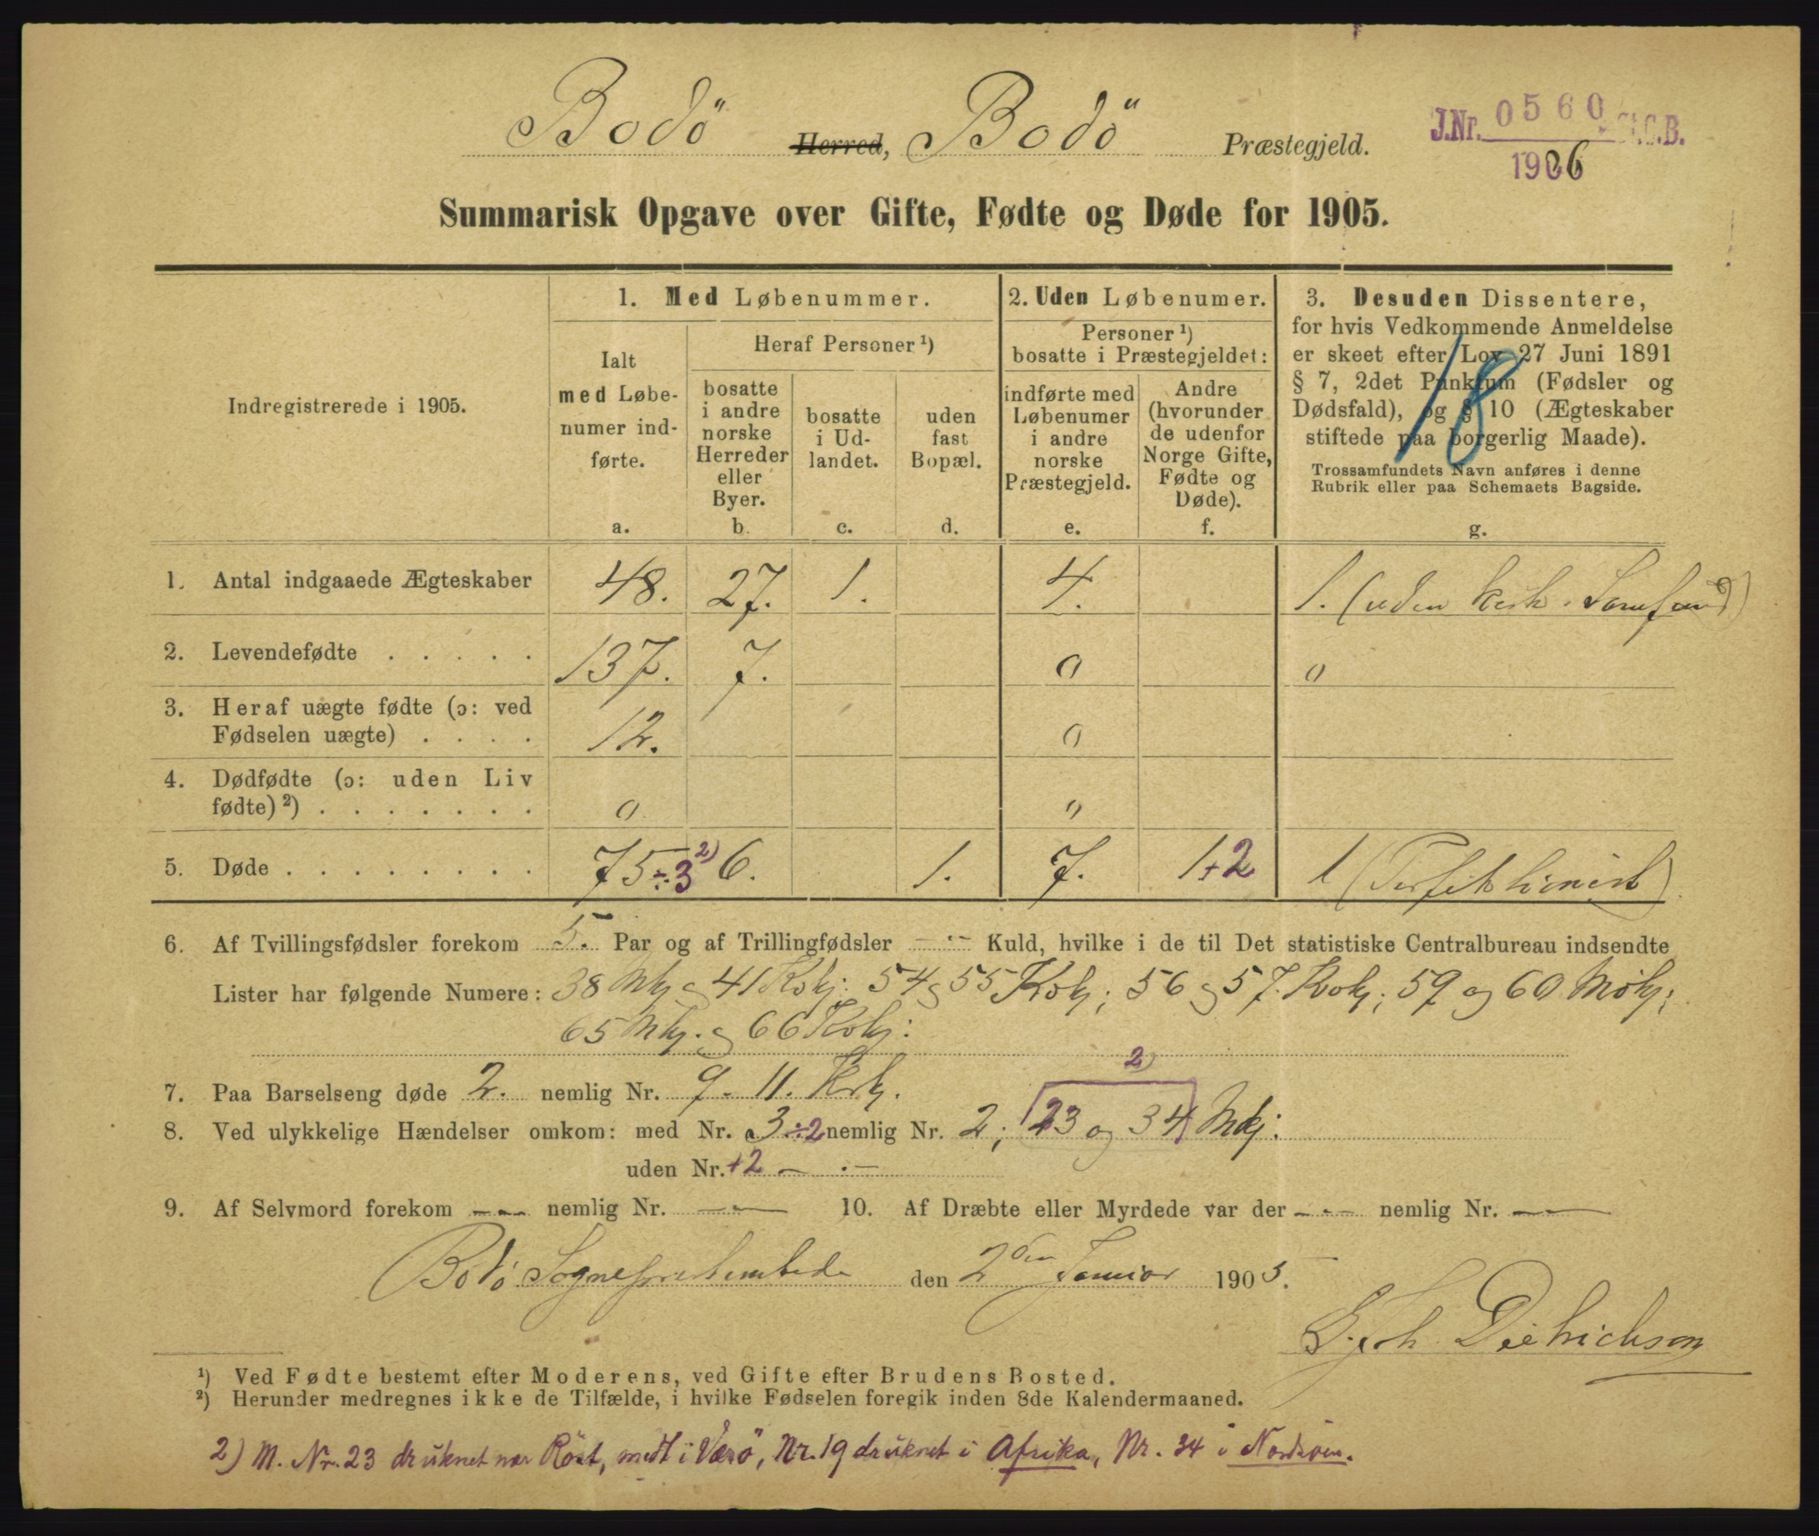 Bodö Herred, Bodö Præstegjeld.
J.Nr. 0560 St.C.B.
1906
Summarisk Opgave over Gifte, Fødte og Døde for 1905.
Indregistrerede i 1905.
1. Med Løbenummer.
Ialt
med Løbe-
numer ind-
førte.
a.
Heraf Personer ¹)
bosatte
i andre
norske
Herreder
eller
Byer.
b.
bosatte
i Ud-
landet.
c.
uden
fast
Bopæl.
d.
2. Uden Løbenumer.
Personer ¹)
bosatte i Præstegjeldet:
indførte med
Løbenumer
i andre
norske
Præstegjeld.
e.
Andre
(hvorunder
de udenfor
Norge Gifte,
Fødte og
Døde).
f.
3. Desuden Dissentere,
for hvis Vedkommende Anmeldelse
er skeet efter Lov 27 Juni 1891
§ 7, 2det Punktum (Fødsler og
Dødsfald), og § 10 (Ægteskaber
stiftede paa borgerlig Maade).
Trossamfundets Navn anføres i denne
Rubrik eller paa Schemaets Bagside.
g.
18
1. Antal indgaaede Ægteskaber 48. 27. 1. 4. 1. (uden kirk. Samfund)
2. Levendefødte . . . . . 137. 7. 0 0
3. Heraf uægte fødte (ɔ: ved
Fødselen uægte) . . . . 12. 0
4. Dødfødte (ɔ: uden Liv
fødte) ²) . . . . . . . 0 "
5. Døde . . . . . . . . 75 ÷ 3 ²) 6. 1. 7. 1+2 1 (Perfektionist)
6. Af Tvillingsfødsler forekom 5. Par og af Trillingfødsler — Kuld, hvilke i de til Det statistiske Centralbureau indsendte
Lister har følgende Numere: 38 Mkj og 41 Kvkj: 54 og 55 Kvkj; 56 og 57. Kvkj; 59 og 60 Mkj;
65 Mkj. og 66 Kvkj:
7. Paa Barselseng døde 2. nemlig Nr. 9. 11. Kvkj.
8. Ved ulykkelige Hændelser omkom: med Nr. 3 ÷2 nemlig Nr. 2; 23 og 34 Mkj: 2)
uden Nr. +2 —
9. Af Selvmord forekom — nemlig Nr. — 10. Af Dræbte eller Myrdede var der — nemlig Nr. —
Bodö Sogneprestembede den 2den Januar 1905.
Dietrichson
¹) Ved Fødte bestemt efter Moderens, ved Gifte efter Brudens Bosted.
²) Herunder medregnes ikke de Tilfælde, i hvilke Fødselen foregik inden 8de Kalendermaaned.
2) M. Nr. 23 druknet nær Röst, medt i Værö, Nr. 19 druknet i Afrika, Nr. 34 i Nordsöen.